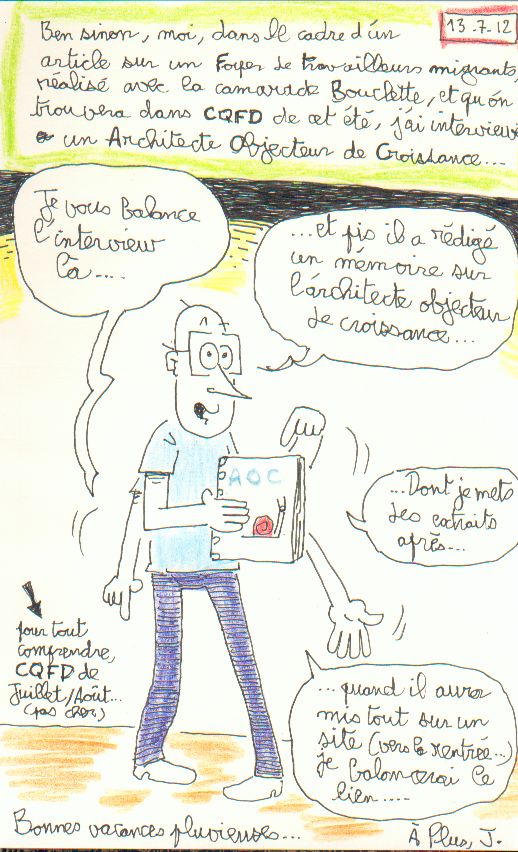 13.7.12
Ben sinon, moi, dans le cadre d'un
article sur un Foyer de travailleurs migrants,
réalisé avec la camarade Bouclette, et qu'on
trouvera dans CQFD de cet été, j'ai interviewé
un Architecte Objecteur de Croissance...
Je vous balance
l'interview
là....
...et pis il a rédigé
un mémoire sur
l'architecte objecteur
de croissance...
AOC
...Dont je mets
des extraits
après...
pour tout
comprendre,
CQFD de
Juillet/Août...
(pas cher)
...quand il aura
mis tout sur un
site (vers la rentrée...)
je balancerai le
lien....
Bonnes vacances pluvieuses...
À Plus, J.